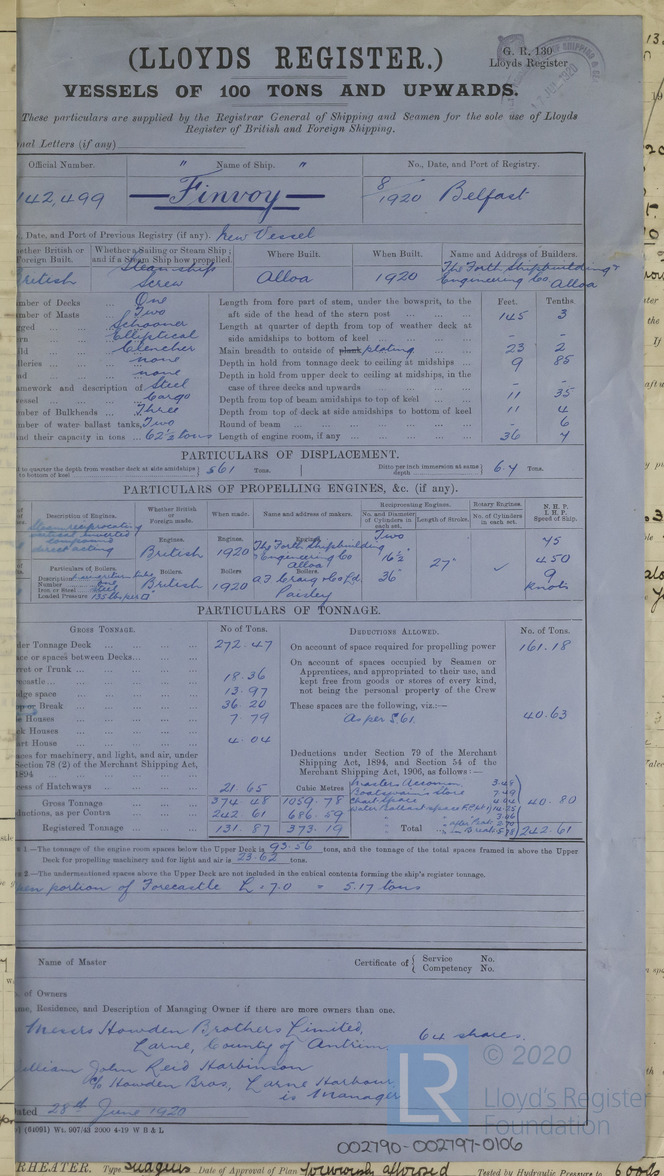 (LLOYDS REGISTER.)
G. R. 130
Lloyds Register
VESSELS OF 100 TONS AND UPWARDS.
These particulars are supplied by the Registrar General of Shipping and Seamen for the sole use of Lloyds
Register of British and Foreign Shipping.
Letters (if any)
Official Number. " Name of Ship. " No., Date, and Port of Registry.
142,499 Finvoy 8/1920 Belfast
Date, and Port of Previous Registry (if any). New Vessel
Whether British or Foreign Built. Whether a Sailing or Steam Ship; and if a Steam Ship how propelled. Where Built. When Built. Name and Address of Builders.
British Steamship Screw Alloa 1920 The Forth Shipbuilding & Engineering Co Alloa
Number of Decks ... One
Number of Masts ... Two
Rigged ... Schooner
Stern ... Elliptical
Build ... Clencher
Galleries ... none
Head ... none
Framework and description of vessel ... Steel Cargo
Number of Bulkheads ... Three
Number of water ballast tanks, Two
and their capacity in tons ... 62½ tons
Feet. Tenths.
Length from fore part of stem, under the bowsprit, to the aft side of the head of the stern post 145 3
Length at quarter of depth from top of weather deck at side amidships to bottom of keel - -
Main breadth to outside of plank plating 23 2
Depth in hold from tonnage deck to ceiling at midships 9 85
Depth in hold from upper deck to ceiling at midships, in the case of three decks and upwards - -
Depth from top of beam amidships to top of keel 11 35
Depth from top of deck at side amidships to bottom of keel 11 4
Round of beam - 6
Length of engine room, if any 36 4
PARTICULARS OF DISPLACEMENT.
to quarter the depth from weather deck at side amidships to bottom of keel } 561 Tons. Ditto per inch immersion at same depth } 6.4 Tons.
PARTICULARS OF PROPELLING ENGINES, &c. (if any).
Description of Engines. Whether British or Foreign made. When made. Name and address of makers. Reciprocating Engines. No. and Diameter of Cylinders in each set. Length of Stroke. Rotary Engines. No. of Cylinders in each set. N. H. P. I. H. P. Speed of Ship.
Steam reciprocating vertical inverted compound direct acting
Engines. British Engines. 1920 Engines. The Forth Shipbuilding & Engineering Co Alloa Two 16½" 36" 27" 45 450 9 knots
Particulars of Boilers.
Description
Number one
Iron or Steel Steel
Loaded Pressure 135 lbs per □"
Boilers. British Boilers 1920 Boilers. A F Craig & Co Ld. Paisley
PARTICULARS OF TONNAGE.
GROSS TONNAGE. No of Tons. DEDUCTIONS ALLOWED. No. of Tons.
Under Tonnage Deck 272.47
Space or spaces between Decks
Turret or Trunk
Forecastle 18.36
Bridge space 13.97
Poop or Break 36.20
Side Houses 7.79
Deck Houses
Chart House 4.04
Spaces for machinery, and light, and air, under Section 78 (2) of the Merchant Shipping Act, 1894
Excess of Hatchways 21.65
Cubic Metres
Gross Tonnage 374.48 1059.78
Deductions, as per Contra 242.61 686.59
Registered Tonnage 131.87 373.19
On account of space required for propelling power 161.18
On account of spaces occupied by Seamen or Apprentices, and appropriated to their use, and kept free from goods or stores of every kind, not being the personal property of the Crew
These spaces are the following, viz.:—
As per S.61. 40.63
Deductions under Section 79 of the Merchant Shipping Act, 1894, and Section 54 of the Merchant Shipping Act, 1906, as follows:—
Masters Accomon
Boatswain's Store
Chart Space 4.04
Water Ballast space
40.80
Total 242.61
1.—The tonnage of the engine room spaces below the Upper Deck is 93.56 tons, and the tonnage of the total spaces framed in above the Upper
Deck for propelling machinery and for light and air is 23.62 tons.
2.—The undermentioned spaces above the Upper Deck are not included in the cubical contents forming the ship's register tonnage.
Open portion of Forecastle L. 7.0 = 5.17 tons
Name of Master Certificate of { Service No. Competency No.
No. of Owners
Name, Residence, and Description of Managing Owner if there are more owners than one.
Messrs Howden Brothers Limited, 64 shares.
Larne, County of Antrim
William John Reid Harbinson
c/o Howden Bros, Larne Harbour,
is Manager
Dated 28th June 1920
(64091) Wt. 907/43 2000 4-19 W B & L
LR © 2020
Lloyd's Register
Foundation
002790-002797-0106
Date of Approval of Plan
Tested by Hydraulic Pressure to